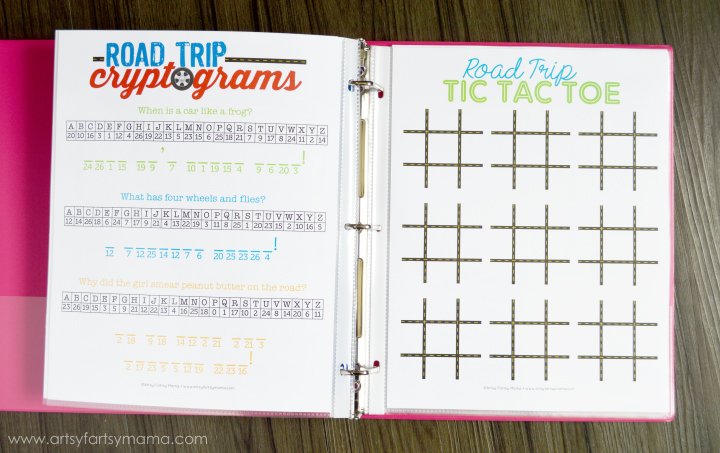 ROAD TRIP
cryptograms
When is a car like a frog?
A B C D E F G H I J K L M N O P Q R S T U V W X Y Z
20 10 16 3 1 12 4 26 19 22 13 5 23 15 6 25 18 21 7 9 17 8 24 11 2 14
' !
24 26 1 15 19 9 7 10 1 19 15 4 9 6 20 3
What has four wheels and flies?
A B C D E F G H I J K L M N O P Q R S T U V W X Y Z
12 14 26 18 6 24 7 17 9 21 4 13 22 19 11 3 8 25 1 20 23 15 2 10 16 5
!
12 7 12 25 14 12 7 6 20 25 23 26 4
Why did the girl smear peanut butter on the road?
A B C D E F G H I J K L M N O P Q R S T U V W X Y Z
Road Trip
TIC TAC TOE
www.artsyfartsymama.com